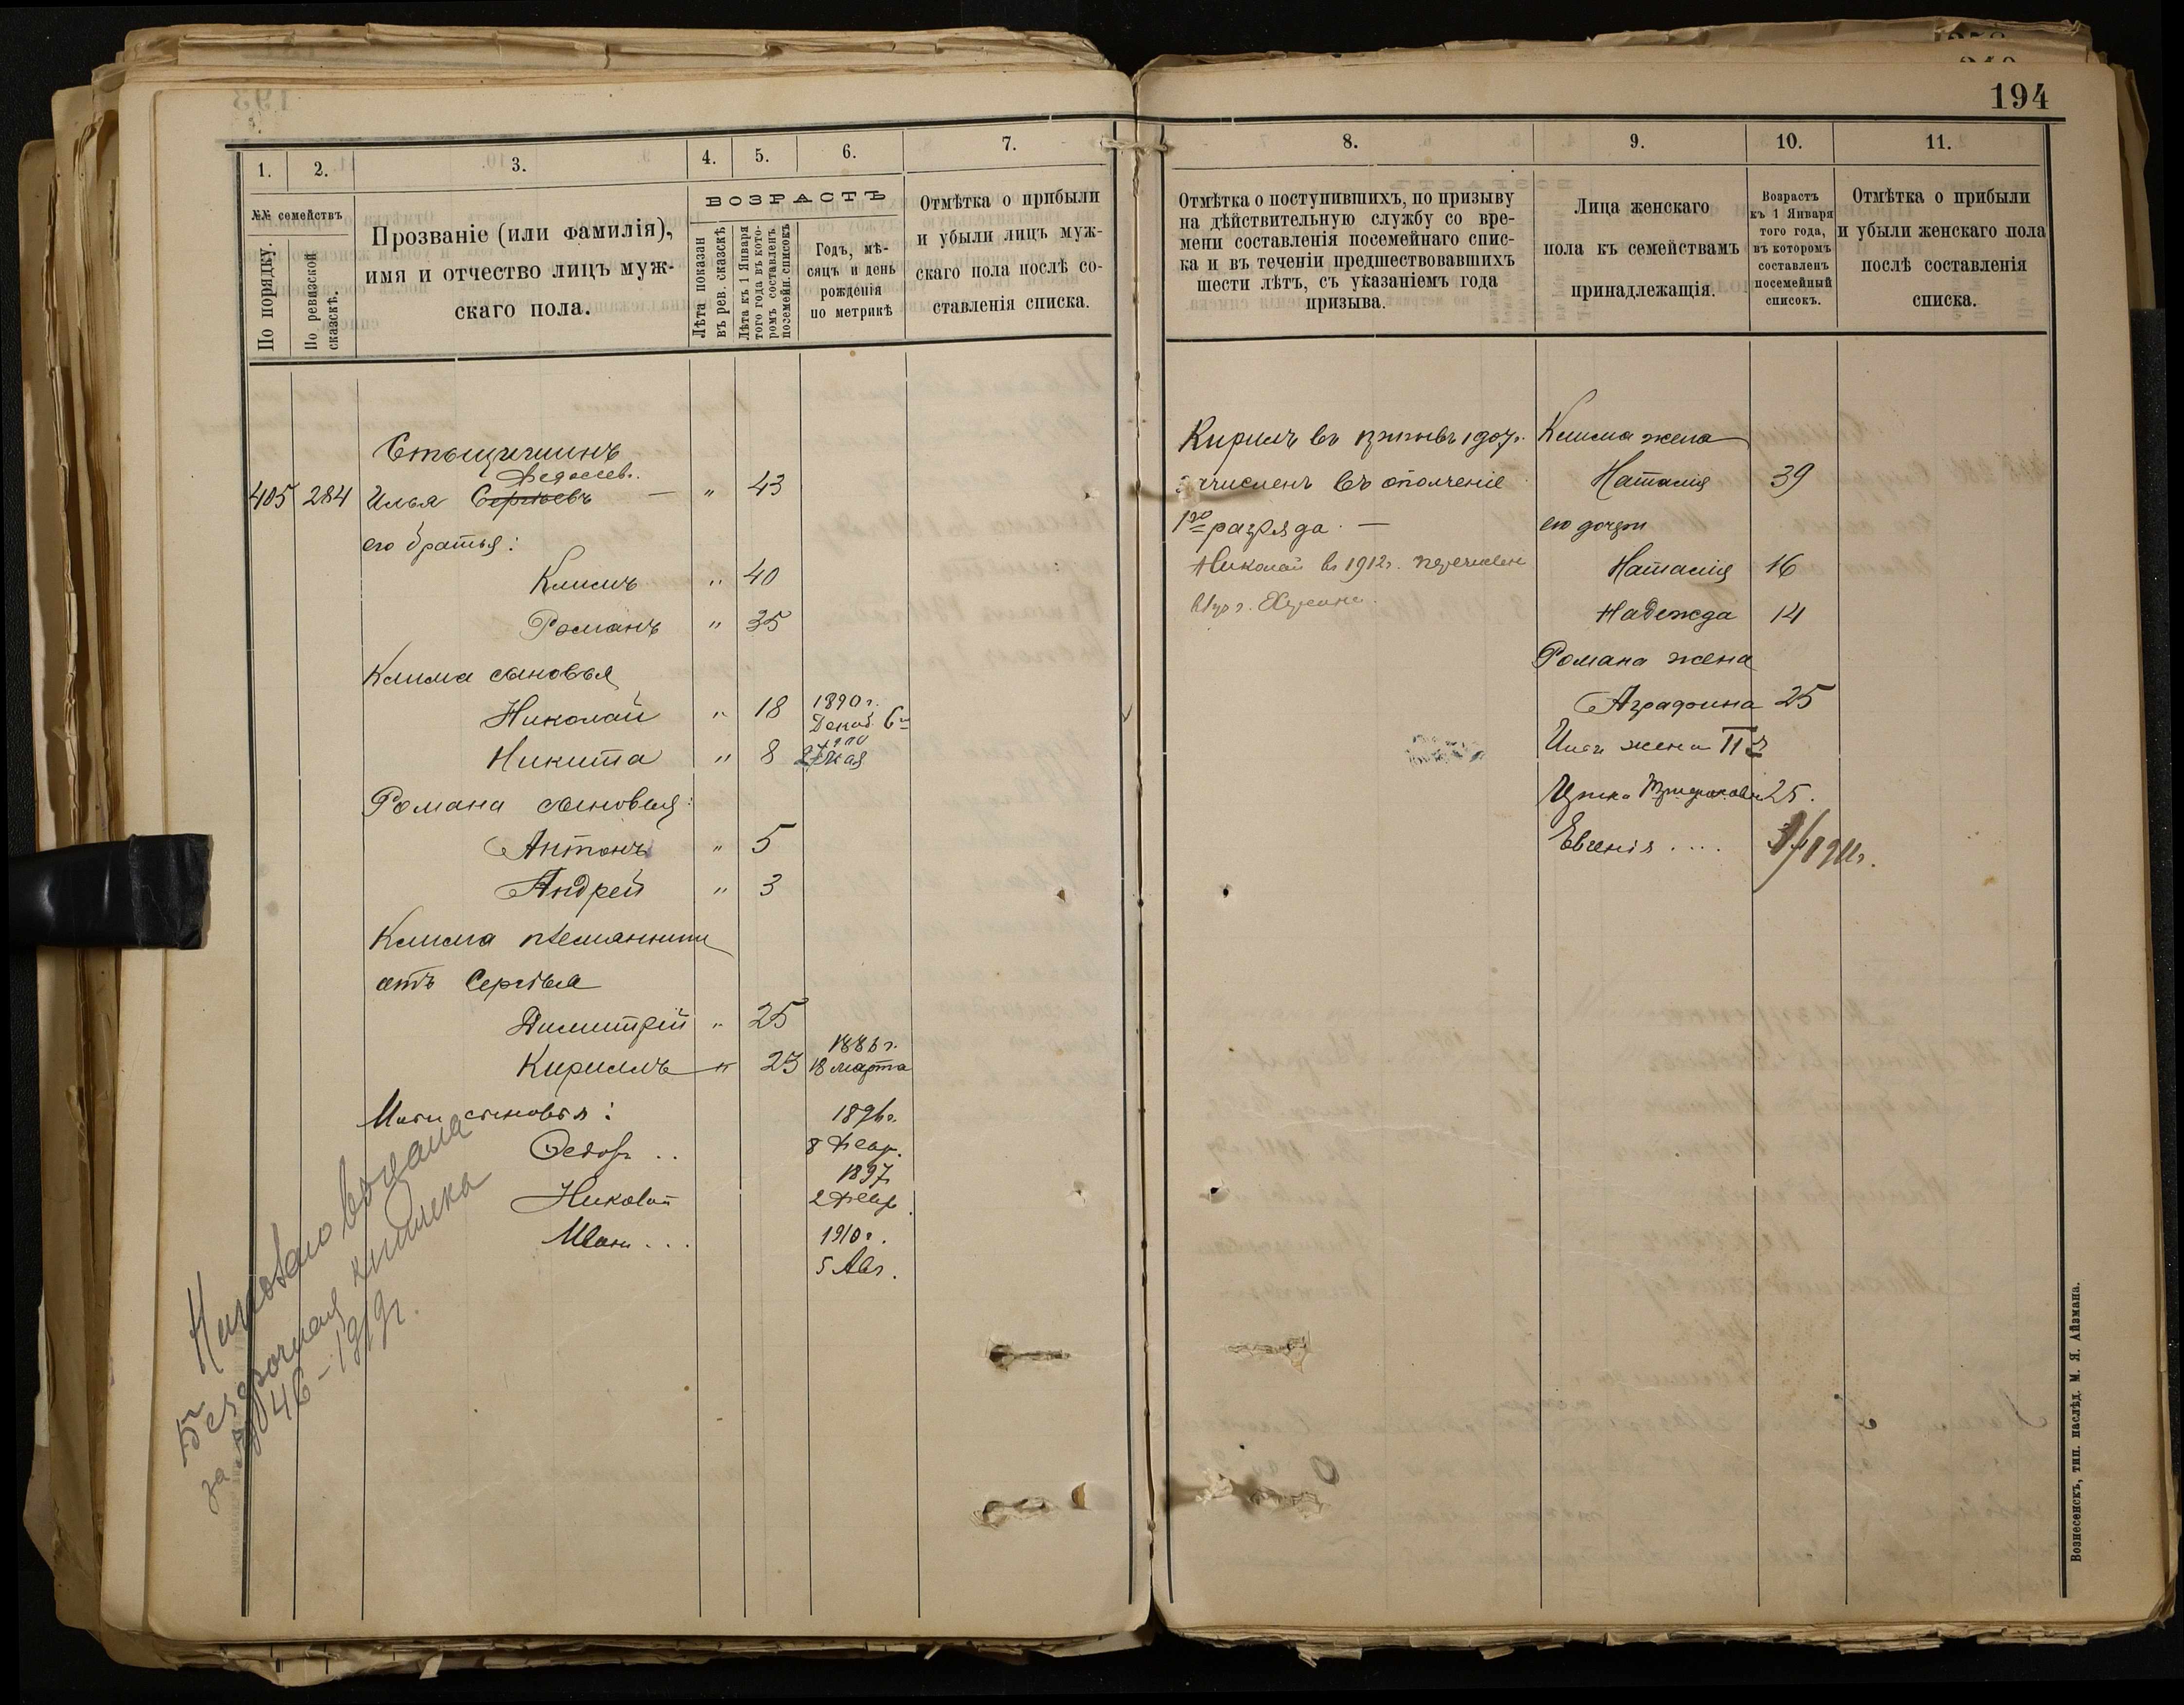 194
1.
2.
3.
4.
5.
6.
7.
№№ семействъ
По порядку.
По ревизской сказкѣ.
Прозваніе (или фамилія),
имя и отчество лицъ муж-
скаго пола.
ВОЗРАСТЪ
Лѣта показан
въ рев. сказкѣ
Лѣта къ 1 Января
того года въ кото-
ромъ составленъ
посемейн. списокъ
Годъ, мѣ-
сяцъ и день
рожденія
по метрикѣ
Отмѣтка о прибыли
и убыли лицъ муж-
скаго пола послѣ со-
ставленія списка.
405 284 Илья Сергѣевъ — " 43
его братья:
Климъ " 40
Романъ " 35
Клима сыновья
Николай " 18 1890 г.
Декаб. 6
Никита " 8
27 мая
Романа сыновья:
Антонъ " 5
Андрей " 3
Клима племянники
отъ Сергѣя
Димитрій " 25
Кириллъ " 23 1886 г.
18 марта
Ильи сыновья: 1896 г.
Федоръ .. 8 Февр.
1897
Николай 2 Февр.
Иванъ ... 1910 г.
5 Авг.
выдана
безсрочная книжка
за № 46 - 1919 г.
8.
9.
10.
11.
Отмѣтка о поступившихъ, по призыву
на дѣйствительную службу со вре-
мени составленія посемейнаго спис-
ка и въ теченіи предшествовавшихъ
шести лѣтъ, съ указаніемъ года
призыва.
Лица женскаго
пола къ семействамъ
принадлежащія.
Возрастъ
къ 1 Января
того года,
въ которомъ
составленъ
посемейный
списокъ.
Отмѣтка о прибыли
и убыли женскаго пола
послѣ составленія
списка.
Кирилъ въ призывъ 1907 г.
зачисленъ въ ополченіе
1го разряда. —
Николай въ 1912 г. перечислен
Клима жена
Наталія 39
его дочери
Наталія 16
Надежда 14
Романа жена
Аграфина 25
Ильи жена II
25.
Евгенія .... 1911 г.
Вознесенскъ, тип. наслѣд. М. Я. Айзмана.